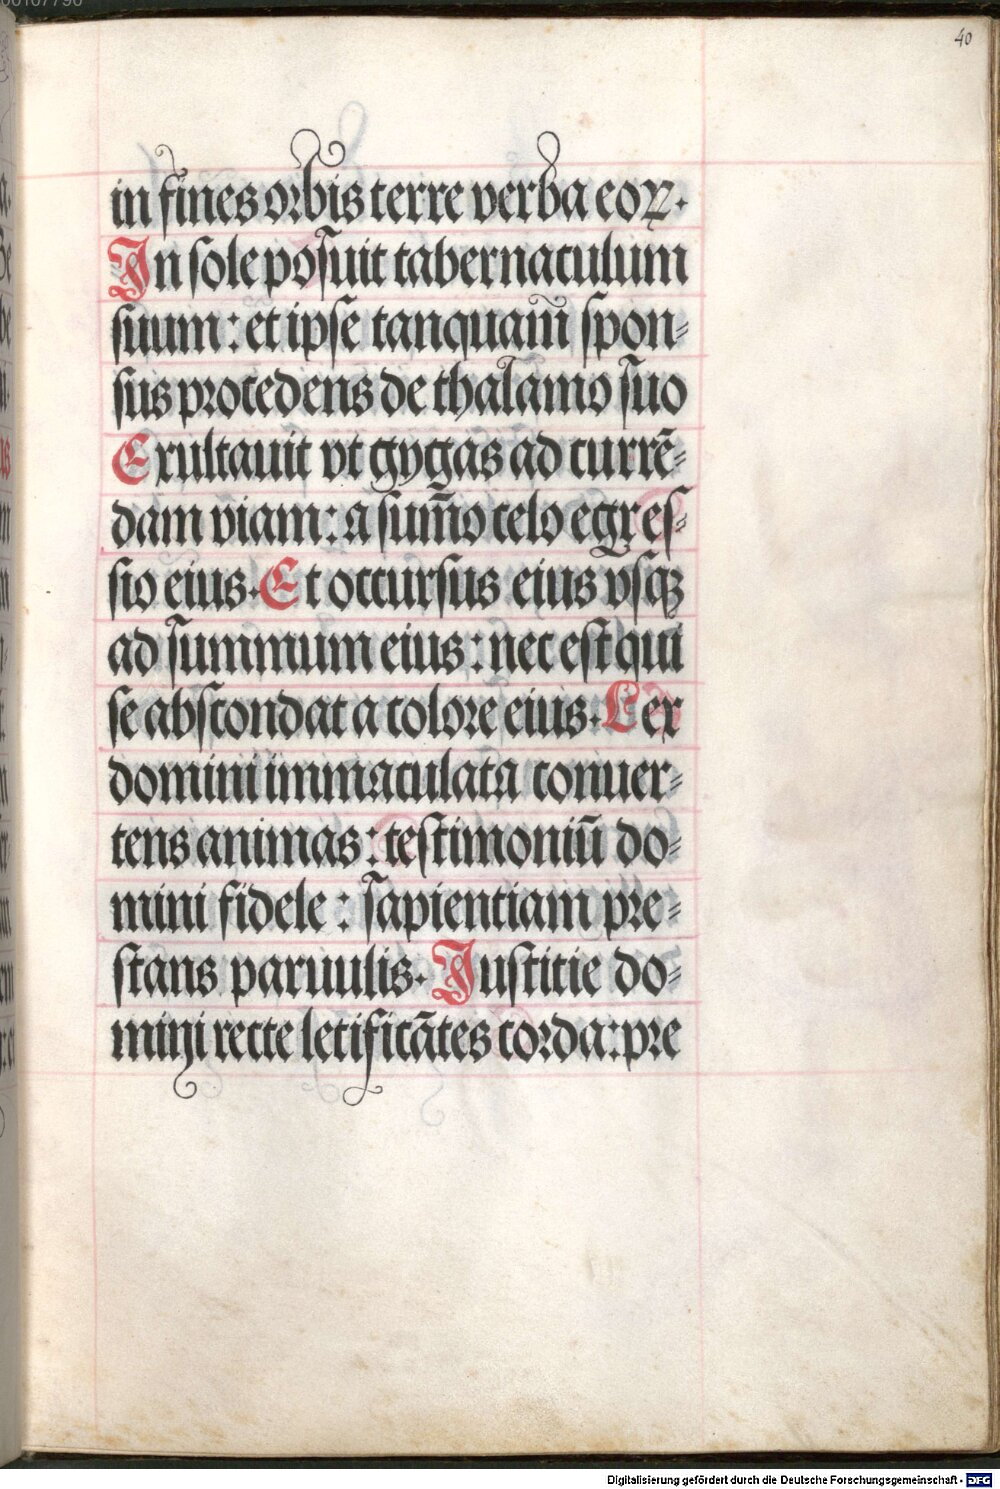 40
in fines orbis terre verba eoꝝ.
In sole posuit tabernaculum
suum: et ipse tanquam̄ spon⸗
sus procedens de thalamo suo
Exultauit vt gygas ad currē⸗
dam viam: a sum̄o celo egres⸗
sio eius. Et occursus eius vsqꝫ
ad summum eius: nec est qui
se abscondat a colore eius. Lex
domini immaculata conuer⸗
tens animas: testimoniū do⸗
mini fidele: sapientiam pre⸗
stans paruulis. Iustitie do⸗
mini recte letificātes corda: pre
Digitalisierung gefördert durch die Deutsche Forschungsgemeinschaft - DFG